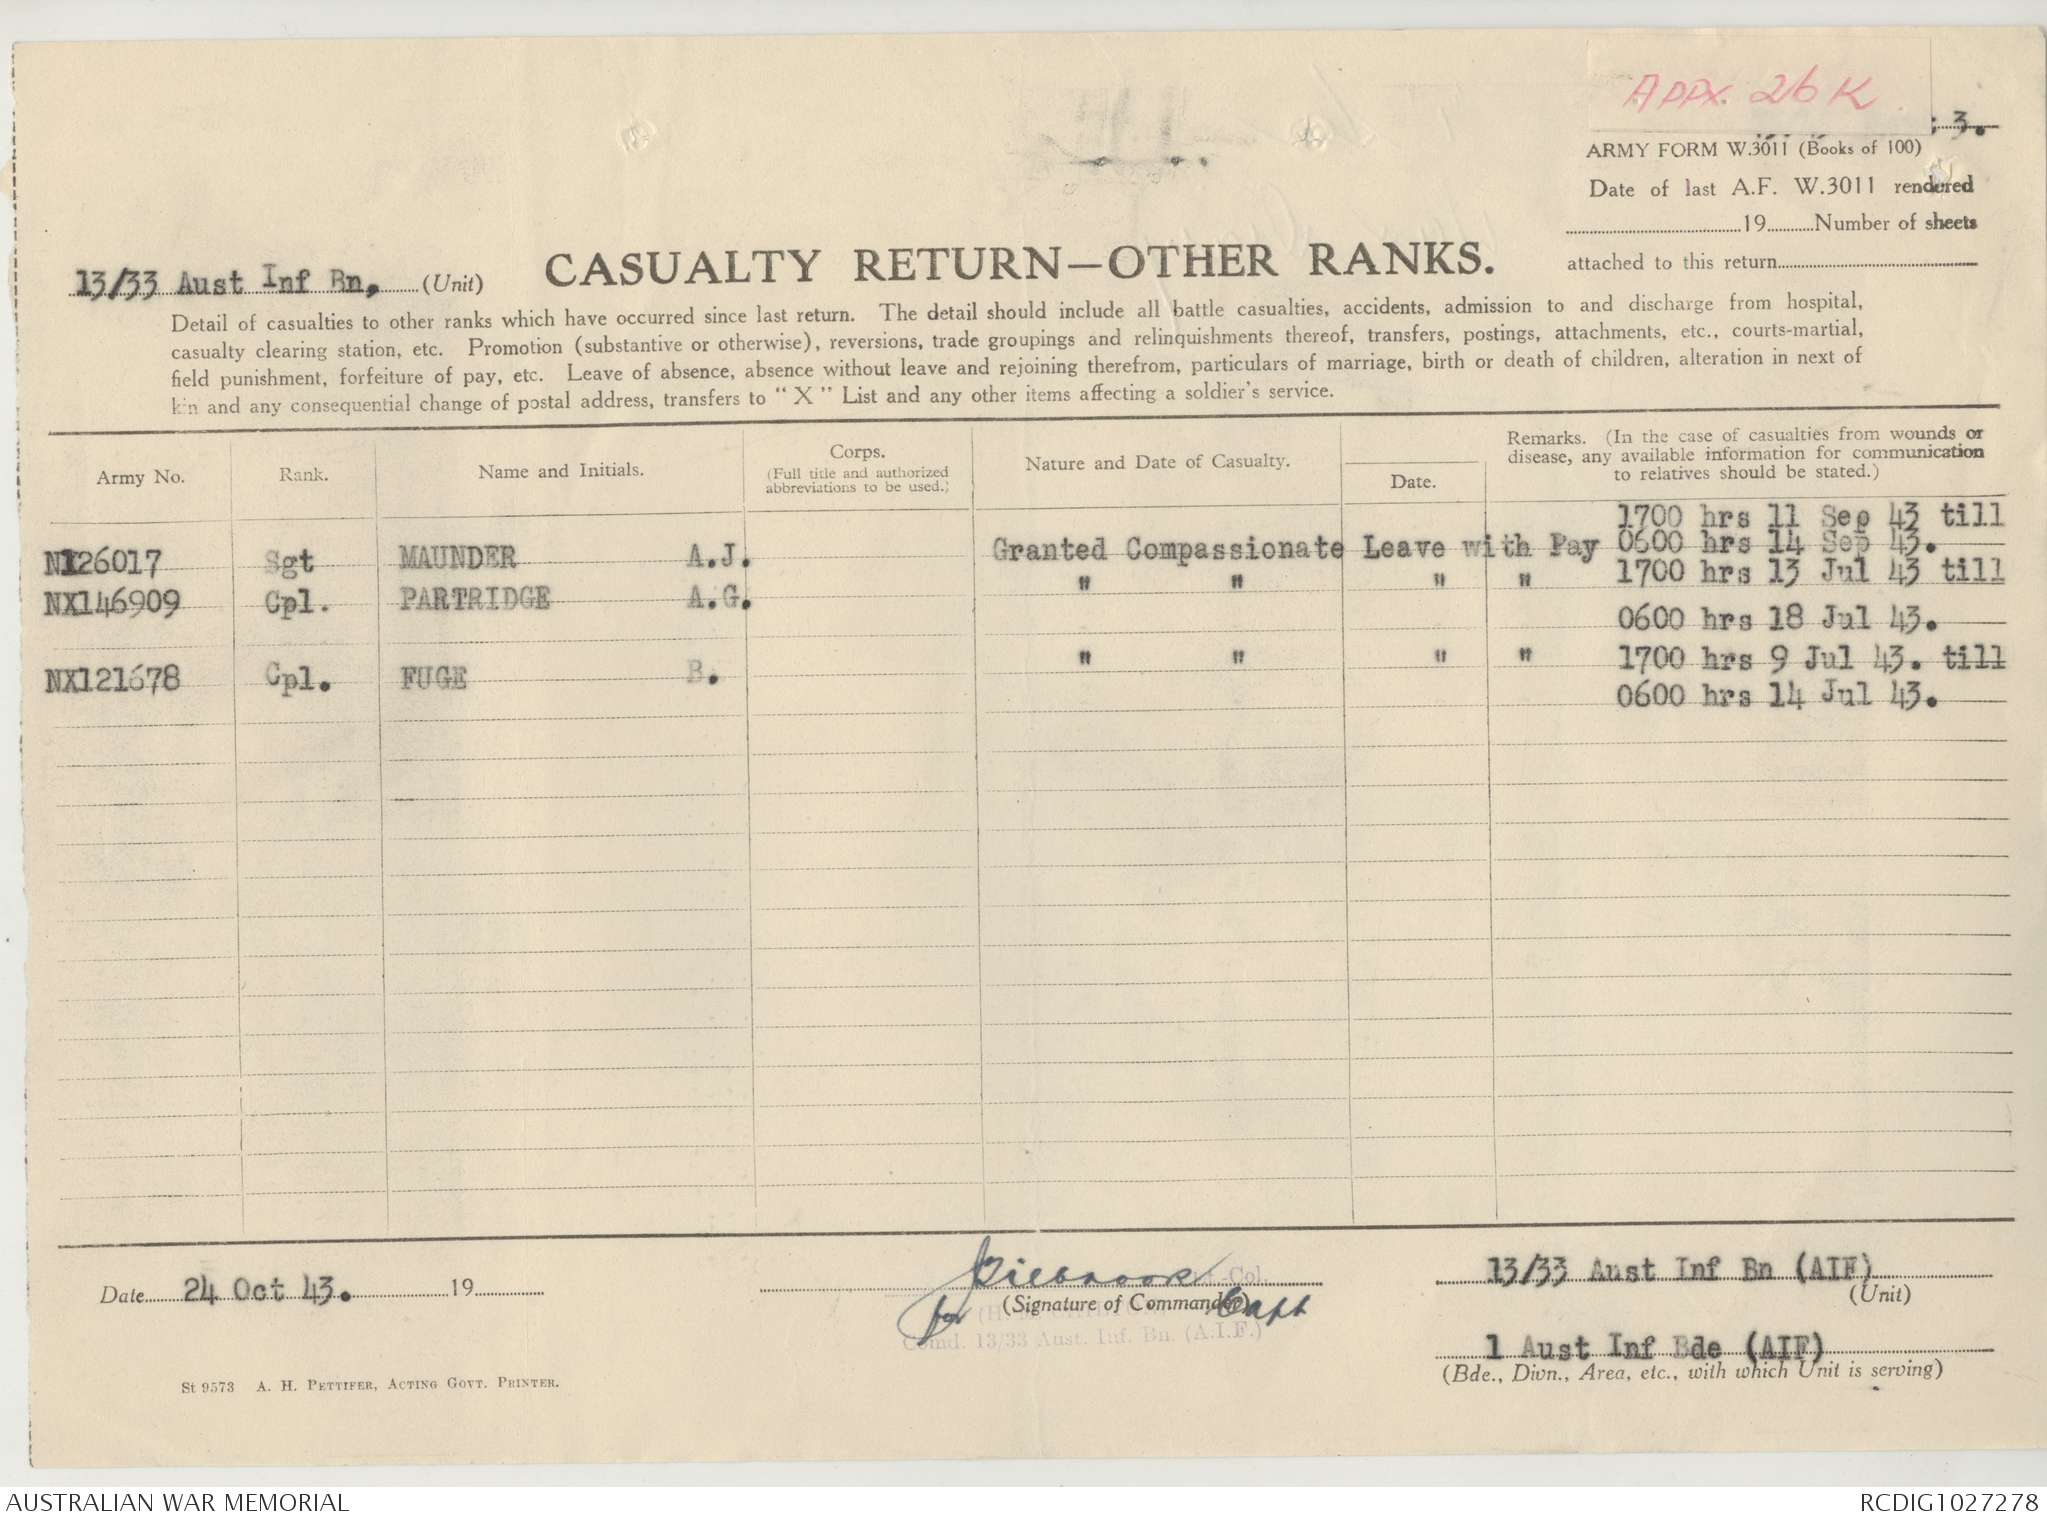 APPX. 26 K
3.
ARMY FORM W.3011 (Books of 100)
Date of last A.F. W.3011 rendered
19 Number of sheets
attached to this return
13/33 Aust Inf Bn. (Unit)
CASUALTY RETURN—OTHER RANKS.
Detail of casualties to other ranks which have occurred since last return. The detail should include all battle casualties, accidents, admission to and discharge from hospital,
casualty clearing station, etc. Promotion (substantive or otherwise), reversions, trade groupings and relinquishments thereof, transfers, postings, attachments, etc., courts-martial,
field punishment, forfeiture of pay, etc. Leave of absence, absence without leave and rejoining therefrom, particulars of marriage, birth or death of children, alteration in next of
kin and any consequential change of postal address, transfers to "X" List and any other items affecting a soldier's service.
Army No. Rank. Name and Initials. Corps. (Full title and authorized abbreviations to be used.) Nature and Date of Casualty. Date. Remarks. (In the case of casualties from wounds or disease, any available information for communication to relatives should be stated.)
1700 hrs 11 Sep 43 till
N126017 Sgt MAUNDER A.J. Granted Compassionate Leave with Pay 0600 hrs 14 Sep 43.
NX146909 Cpl. PARTRIDGE A.G. " " " " 1700 hrs 13 Jul 43 till
0600 hrs 18 Jul 43.
NX121678 Cpl. FUGE B. " " " " 1700 hrs 9 Jul 43. till
0600 hrs 14 Jul 43.
Date 24 Oct 43. 19
Lt.-Col.
(Signature of Commander)
for Capt
Comd. 13/33 Aust. Inf. Bn. (A.I.F.)
13/33 Aust Inf Bn (AIF)
(Unit)
1 Aust Inf Bde (AIF)
(Bde., Divn., Area, etc., with which Unit is serving)
St 9573 A. H. PETTIFER, ACTING GOVT. PRINTER.
AUSTRALIAN WAR MEMORIAL
RCDIG1027278